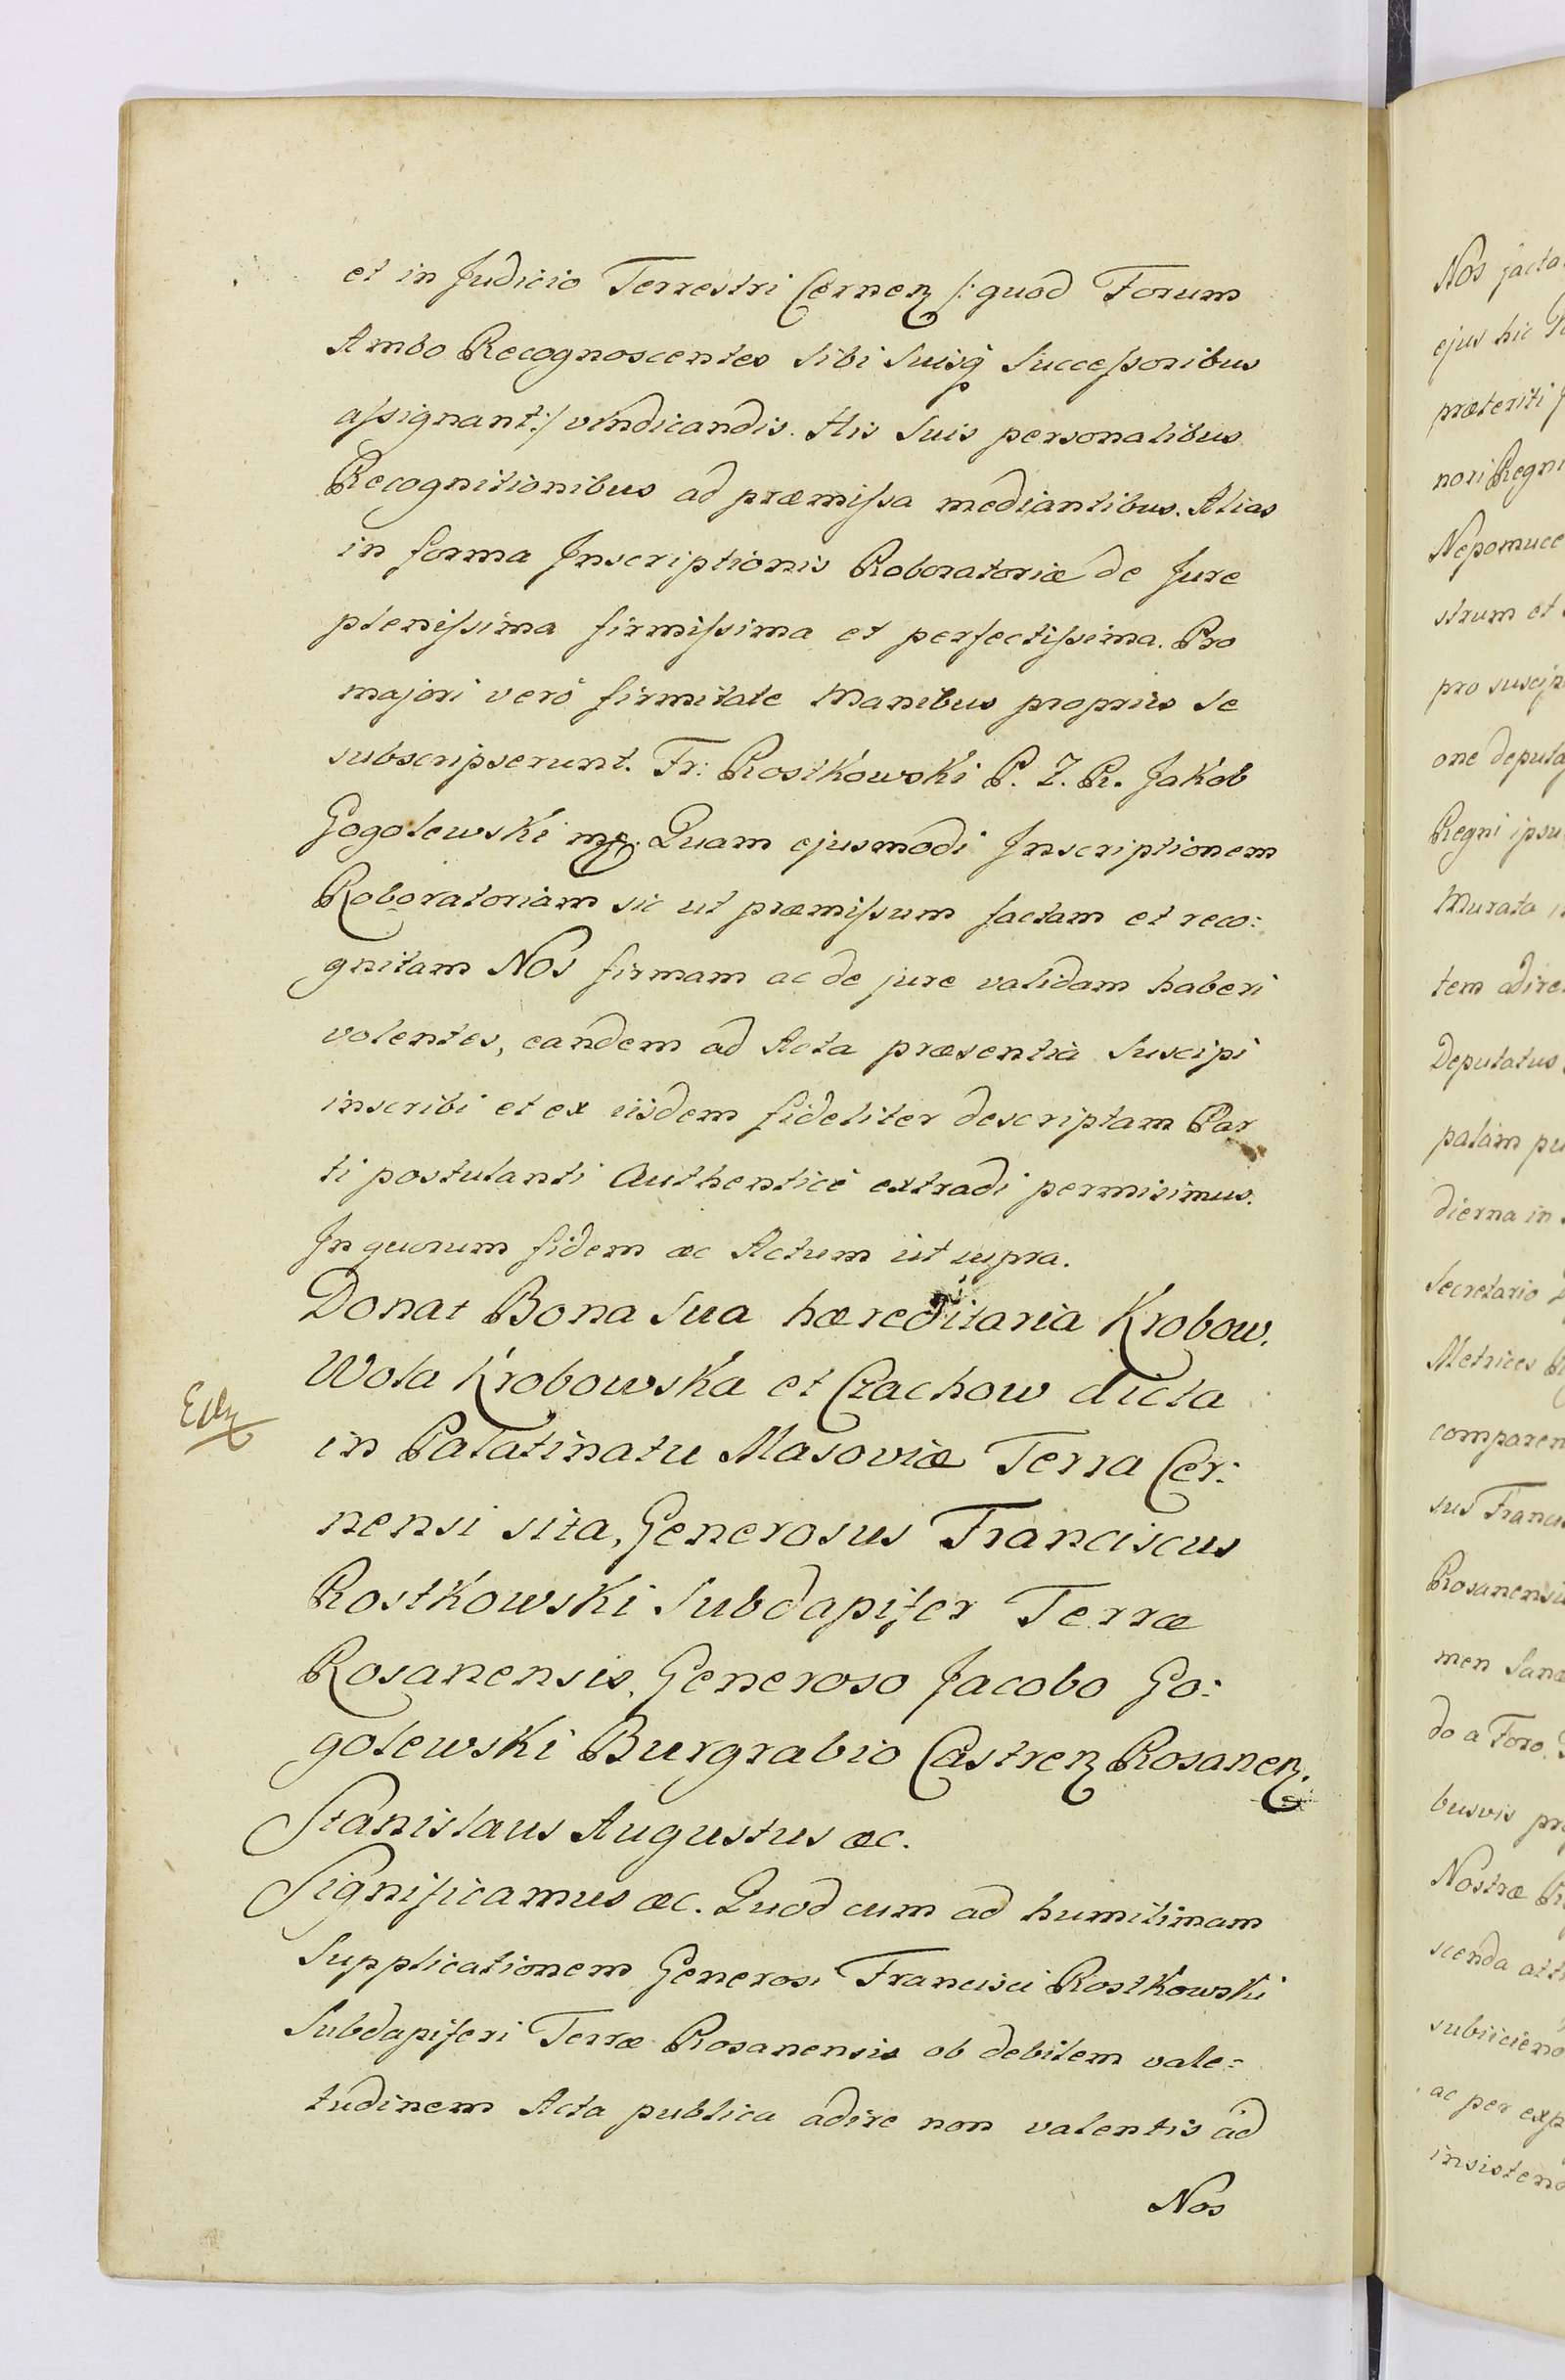 et in Judicio Terrestri Cernen /: quod Forum
Ambo Recognoscentes Sibi Suisq Successoribus
assignant :/ vindicandis. His Suis personalibus
Recognitionibus ad præmissa mediantibus. Alias
in forma Inscriptionis Roboratoriæ de Jure
plenissima firmissima et perfectissima. Pro
majori verò firmitate Manibus propriis Se
subscripserunt. Fr: Rostkowski P. Z. R. Jakob
Gogolewski mp. Quam ejusmodi Inscriptionem
Roboratoriam sic ut præmissum factam et reco:
gnitam Nos firmam ac de jure validam haberi
volentes, eandem ad Acta præsentia Suscipi
inscribi et ex iisdem fideliter descriptam Par
ti postulanti Authenticè extradi permisimus.
In quorum fidem æc Actum ut supra.
Donat Bona Sua hæreditaria Krobow.
Wola Krobowska et Czachow dicta
in Palatinatu Masoviæ Terra Cer:
nensi sita, Generosus Franciscus
Rostkowski Subdapifer Terræ
Rosanensis, Generoso Jacobo Go:
golewski Burgrabio Castren Rosanen.
Stanislaus Augustus æc.
Significamus æc. Quod cum ad humilimam
Supplicationem Generosi Francisci Rostkowski
Subdapiferi Terræ Rosanensis ob debilem vale:
tudinem Acta publica adire non valentis ad
Nos
Nos facta
ejus hic
præteriti
nori Regni
Nepomuce
strum et
pro suscip
one deputa
Regni ipsu
Murata
tem adire
Deputatus
palam pu
dierna in
Secretario
Metrices
comparen
sus Franci
Rosanensis
men Sana
do a Foro
busvis pr
Nostræ
scenda att
subiiciend
ac per exp
insistend